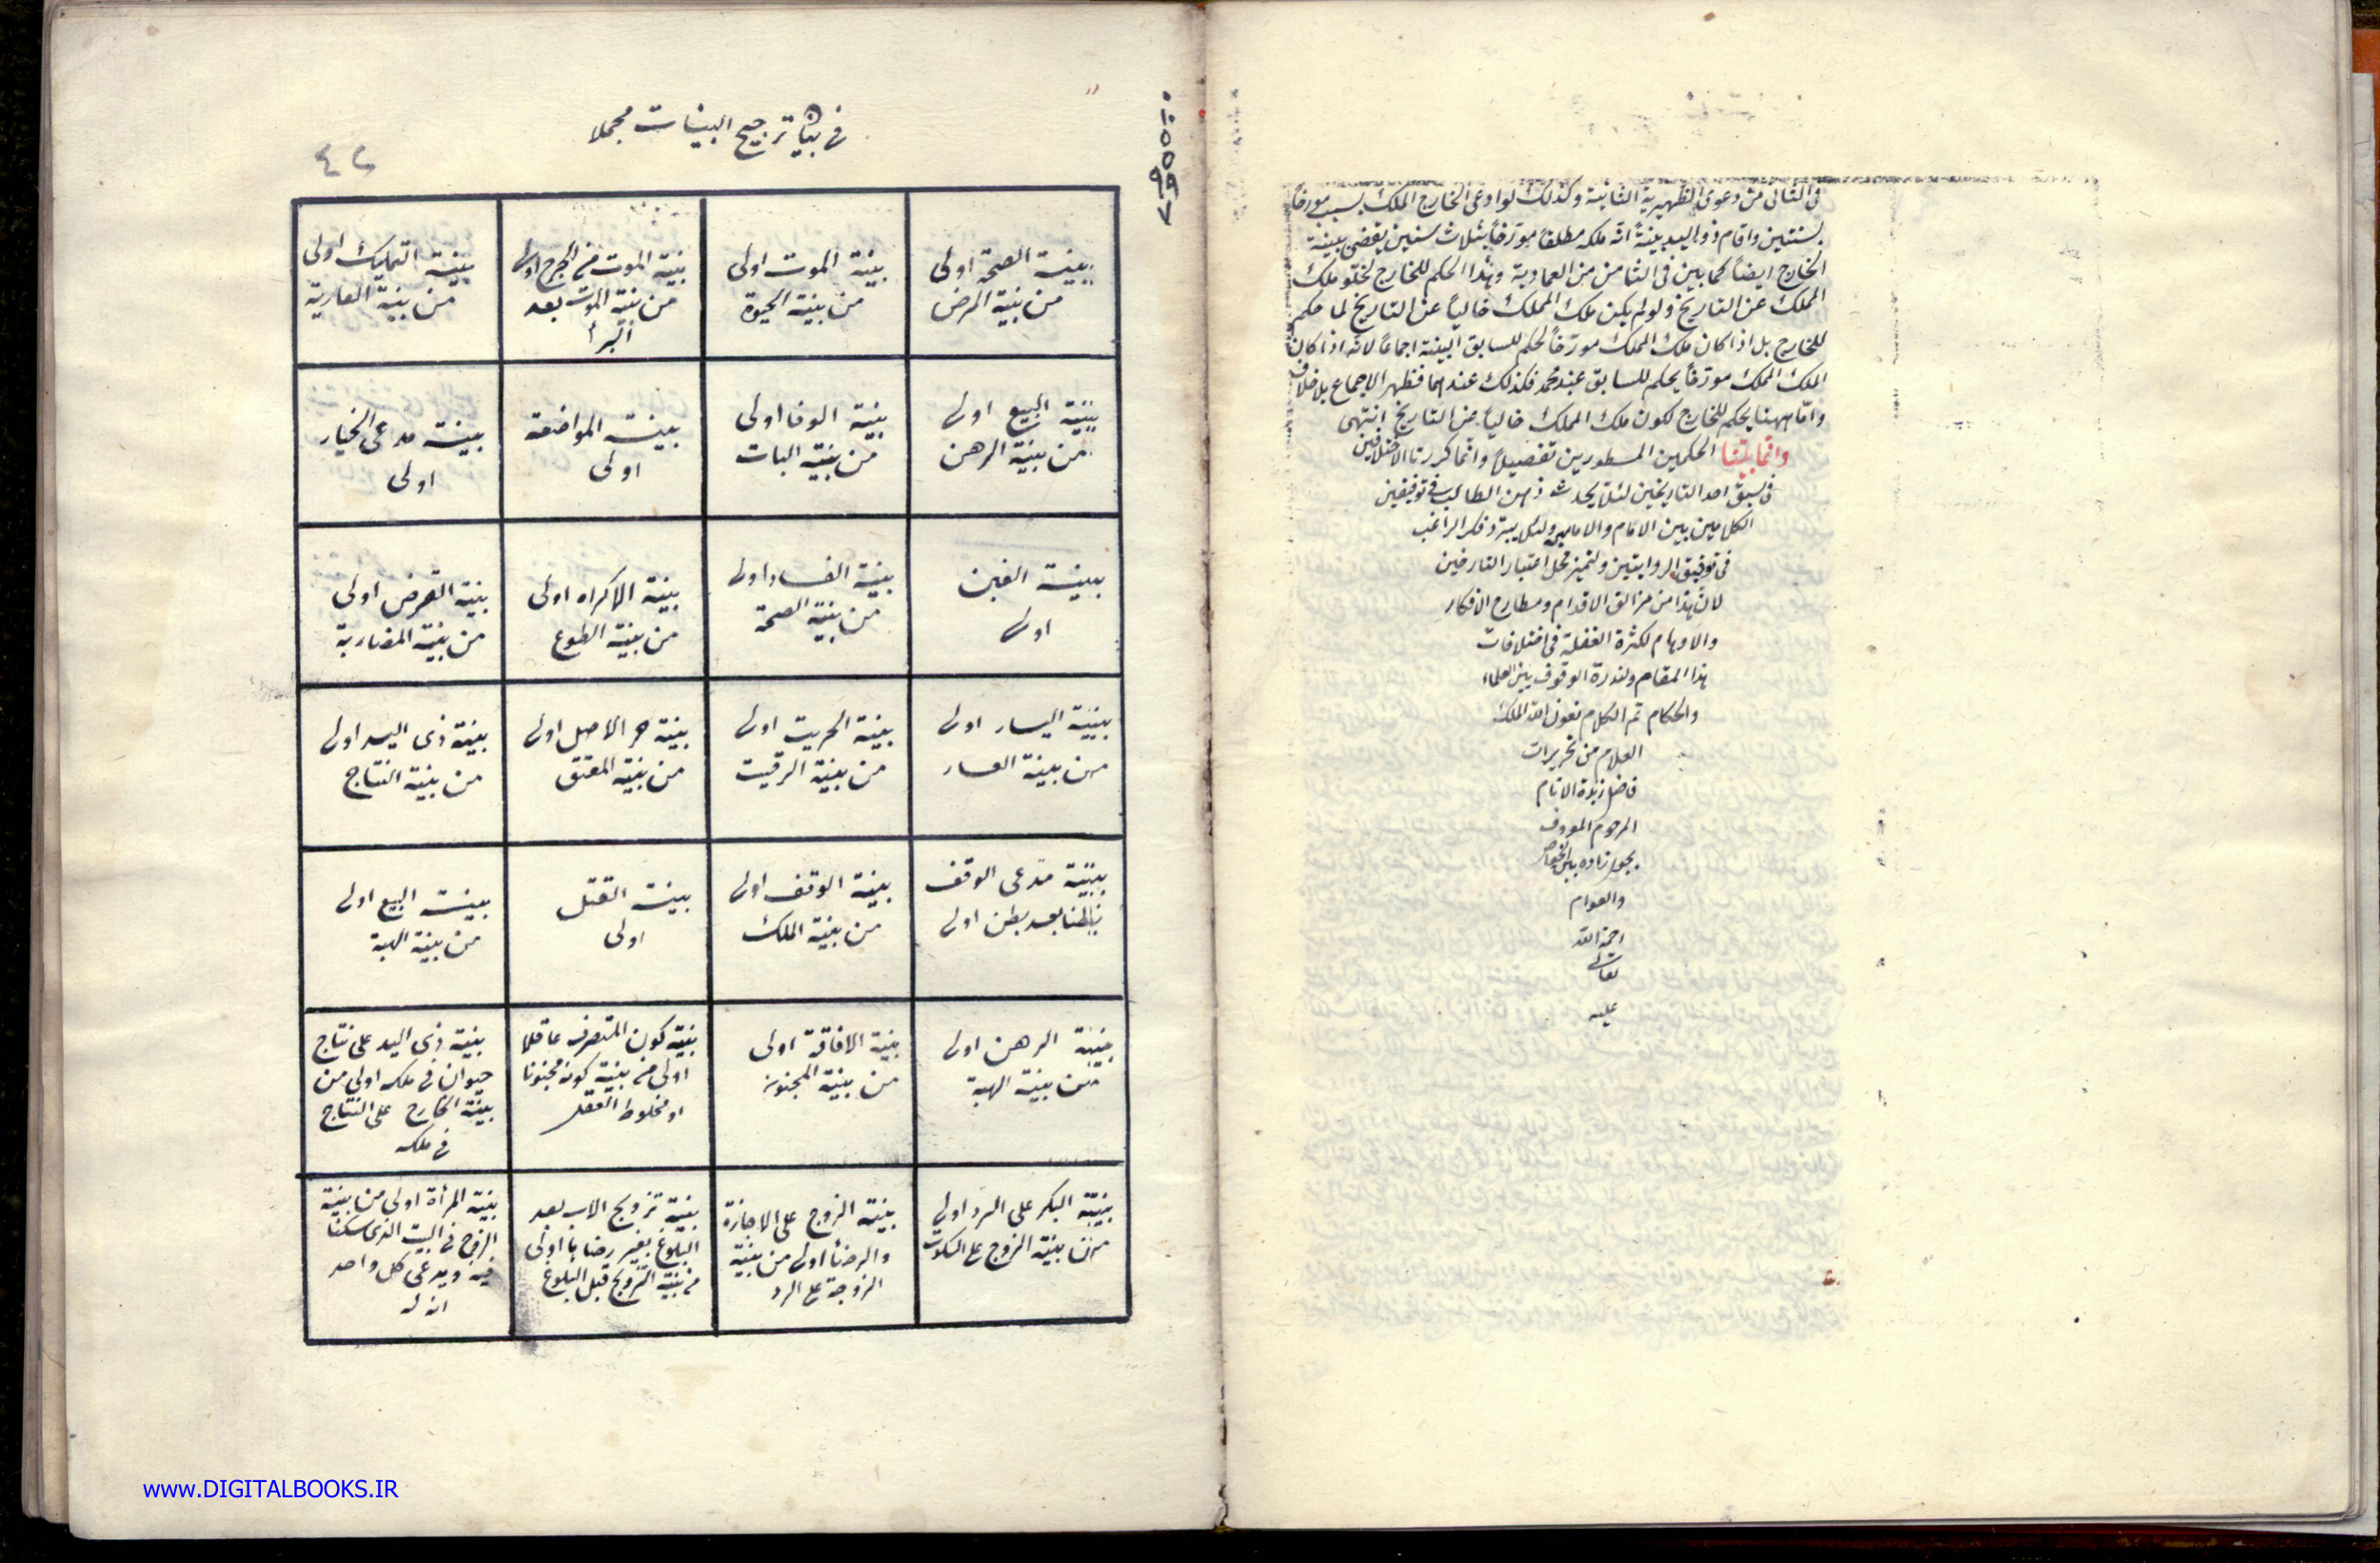 فى الثانى من دعوى الظهيرية الثانية وكذلك لو ادعى الخارج الملك بسبب مورخاً
بسنتين واقام ذو اليد بينة انه ملكه مطلقا مورخاً بثلاث سنين يقضى ببينة
الخارج ايضاً كما بين فى الثامن من العمادية وهذا الحكم للخارج لخلو ملك
المملك عن التاريخ ولو لم يكن ملك المملك خالياً عن التاريخ لما حكم
للخارج بل اذا كان ملك المملك مورخاً لحكم للسابق البينة اجماعاً لانه اذا كان
الملك المملك مورخاً يحكم للسابق عند محمد فكذلك عندهما فظهر الاجماع بلا خلاف
واما ههنا يحكم للخارج لكون ملك المملك خالياً من التاريخ انتهى
وانما بينا الحكمين المسطورين تفصيلاً وانما كررنا الاختلافين
فى سبق احد التاريخين لئلا يحدث ذهن الطالب فى توفيقين
الكلامين بين الامام والامامين ولئلا يتبرد فكر الراغب
فى توفيق الروايتين ولتميز محل اعتبار التارخين
لان هذا من مزالق الاقدام ومطارح الافكار
والاوهام لكثرة الغفلة فى اختلافات
هذا المقام ولندرة الوقوف بين العلماء
والحكام تم الكلام بعون الله الملك
العلام من تحريرات
فاضل زبدة الانام
المرحوم المعروف
زاده بين الخواص
والعوام
رحمة الله
تعالى
عليه
فى بيان ترجيح البينات مجملا
٤٢
بينة الصحة اولى
من بينة المرض
بينة الموت اولى
من بينة الحيوة
بينة الموت من الجرح اولى
من بينة الموت بعد
البرأ
بينة التمليك اولى
من بينة العارية
بينة البيع اولى
من بينة الرهن
بينة الوفا اولى
من بينة البات
بينة المواضعة
اولى
بينة مدعى الخيار
اولى
بينة الغبن
اولى
بينة الفساد اولى
من بينة الصحة
بينة الاكراه اولى
من بينة الطوع
بينة القرض اولى
من بينة المضاربة
بينة اليسار اولى
من بينة العسار
بينة الحريت اولى
من بينة الرقيت
بينة حر الاصل اولى
من بينة المعتق
بينة ذى اليد اولى
من بينة النتاج
بينة مدعى الوقف
بطنا بعد بطن اولى
بينة الوقف اولى
من بينة الملك
بينة القتل
اولى
بينة البيع اولى
من بينة الهبة
بينة الرهن اولى
من بينة الهبة
بينة الافاقة اولى
من بينة المجنونة
بينة كون المتصرف عاقلا
اولى من بينة كونه مجنونا
او مخلوط العقل
بينة ذى اليد على نتاج
حيوان فى ملكه اولى من
بينة الخارج على النتاج
فى ملكه
بينة البكر على الرد اولى
من بينة الزوج على السكوت
بينة الزوج على الاجازة
والرضأ اولى من بينة
الزوجة على الرد
بينة تزويج الاب بعد
البلوغ بغير رضاها اولى
من بينة التزويج قبل البلوغ
بينة المرأة اولى من بينة
الزوج فى البيت الذى سكنا
فيه ويدعى كل واحد
انه له
www.DIGITALBOOKS.IR